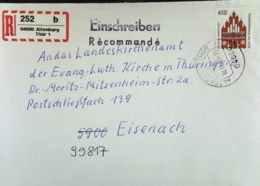 R
252 b
04600 Altenburg
Thür 1
Einschreiben
Récommandé
450
An das Landeskirchenamt
der Evang.-Luth. Kirche in Thüringen
Dr.-Moritz-Mitzenheim-Str. 2a
Postschließfach 139
5900 Eisenach
99817